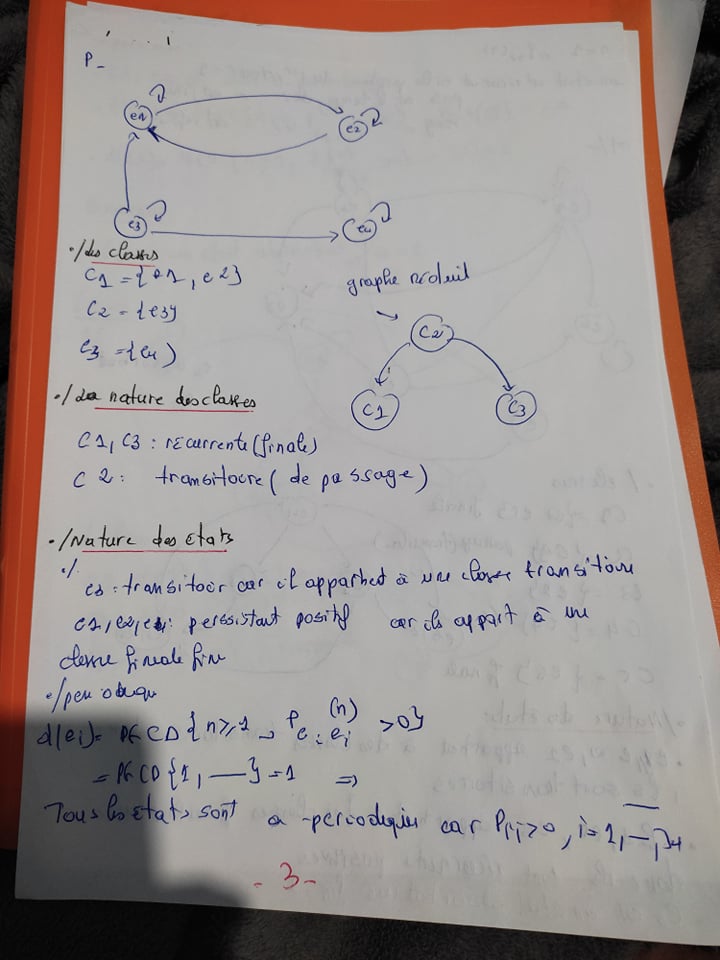 P_
e1
e2
e3
e4
./des classes
C1 = {e1, e2}
C2 = {e3}
C3 = {e4}
graphe réduit
C2
C1
C3
./La nature des classes
C1, C3 : récurrente (finale)
C2 : transitoire ( de passage )
./Nature des états
e3 : transitoir car il appartient à une classe transitoire
e1, e2, e4 : perssistant positif car ils appart à une
classe finale finie
d(ei) = PGCD { n ≥ 1 , P ei ei (n) > 0}
= PGCD {1, —} = 1 ⇒
Tous les états sont a-periodiques car Pii > 0 , i = 1, —, 4
- 3 -